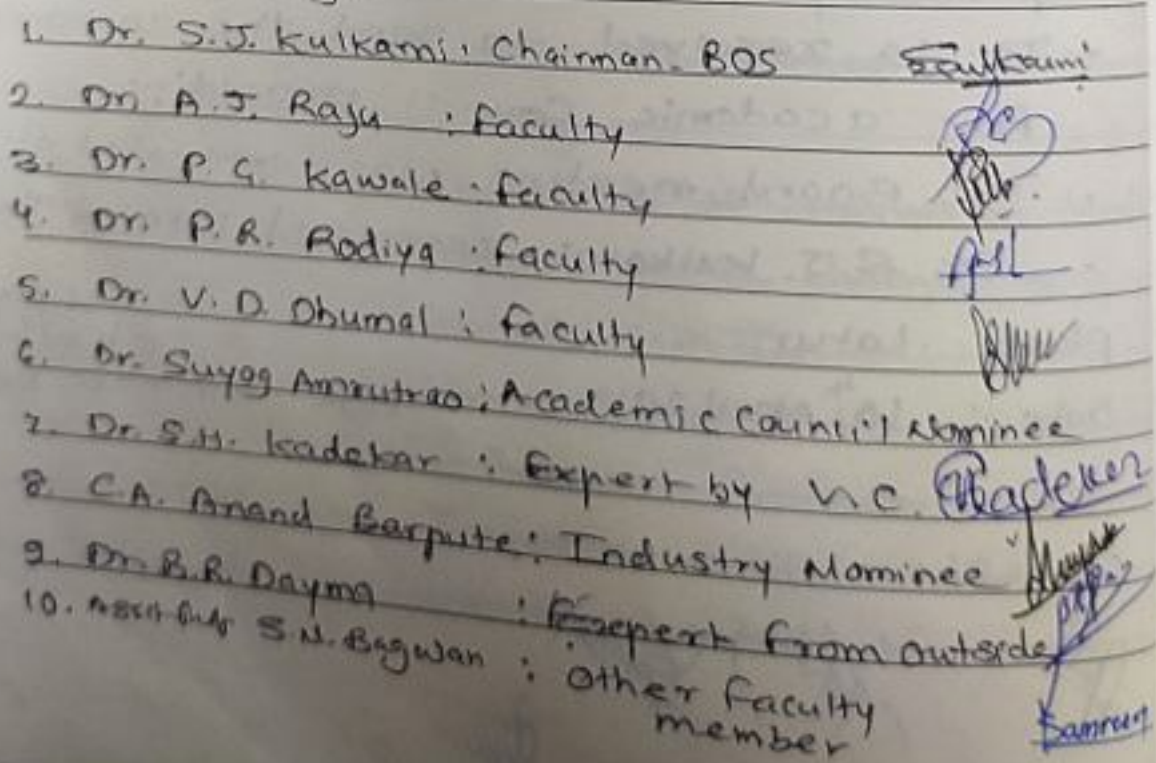 1. Dr. S.J. Kulkarni : Chairman. BOS Skulkarni
2. Dr. A.J. Raju : faculty
3. Dr. P.G. Kawale : faculty
4. Dr. P.R. Rodiya : faculty
5. Dr. V.D. Dhumal : faculty
6. Dr. Suyog Amrutrao : Academic Council Nominee
7. Dr. S.H. Kadekar : Expert by V.C. Kadekar
8. C.A. Anand Barpute : Industry Nominee
9. Dr. B.R. Dayma : Expert from outside
10. S.N. Bagwan : other faculty
member